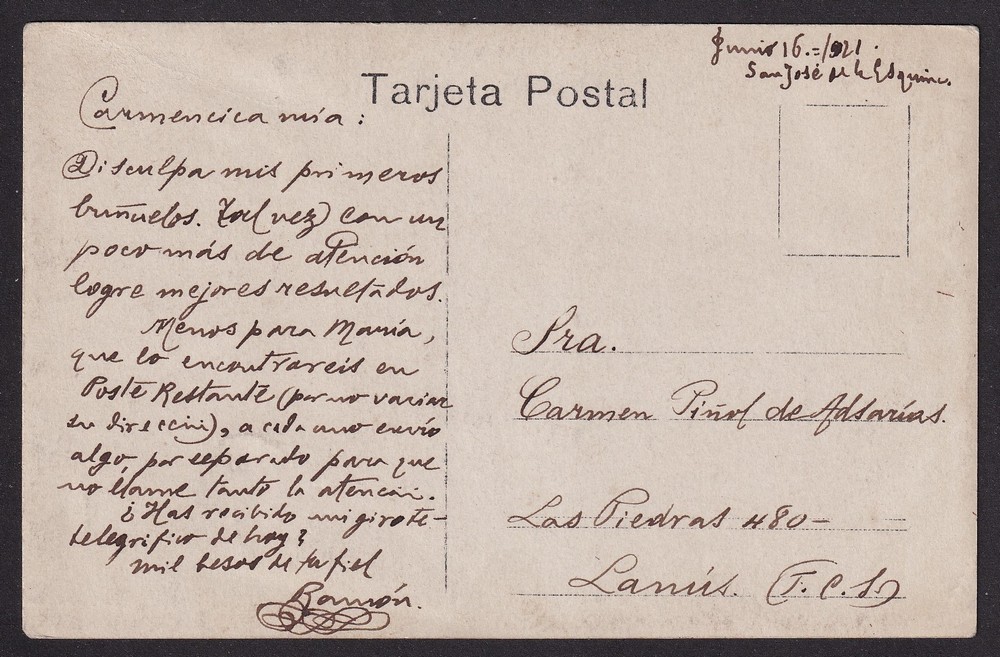 Junio 16.=/921.
San José de la Esquina.
Tarjeta Postal
Carmencica mía:
Disculpa mis primeros
buñuelos. Tal vez con un
poco más de atención
logre mejores resultados.
Menos para María,
que lo encontrareis en
Poste Restante (por no variar
su dirección), a cada uno envío
algo por separado para que
no llame tanto la atención.
¿Has recibido mi giro te-
telegrífico de hoy?
Mil besos de tu fiel
Ramón.
Sra.
Carmen Piñol de Adsarias.
Las Piedras 480-
Lanús. (F.C.S.)